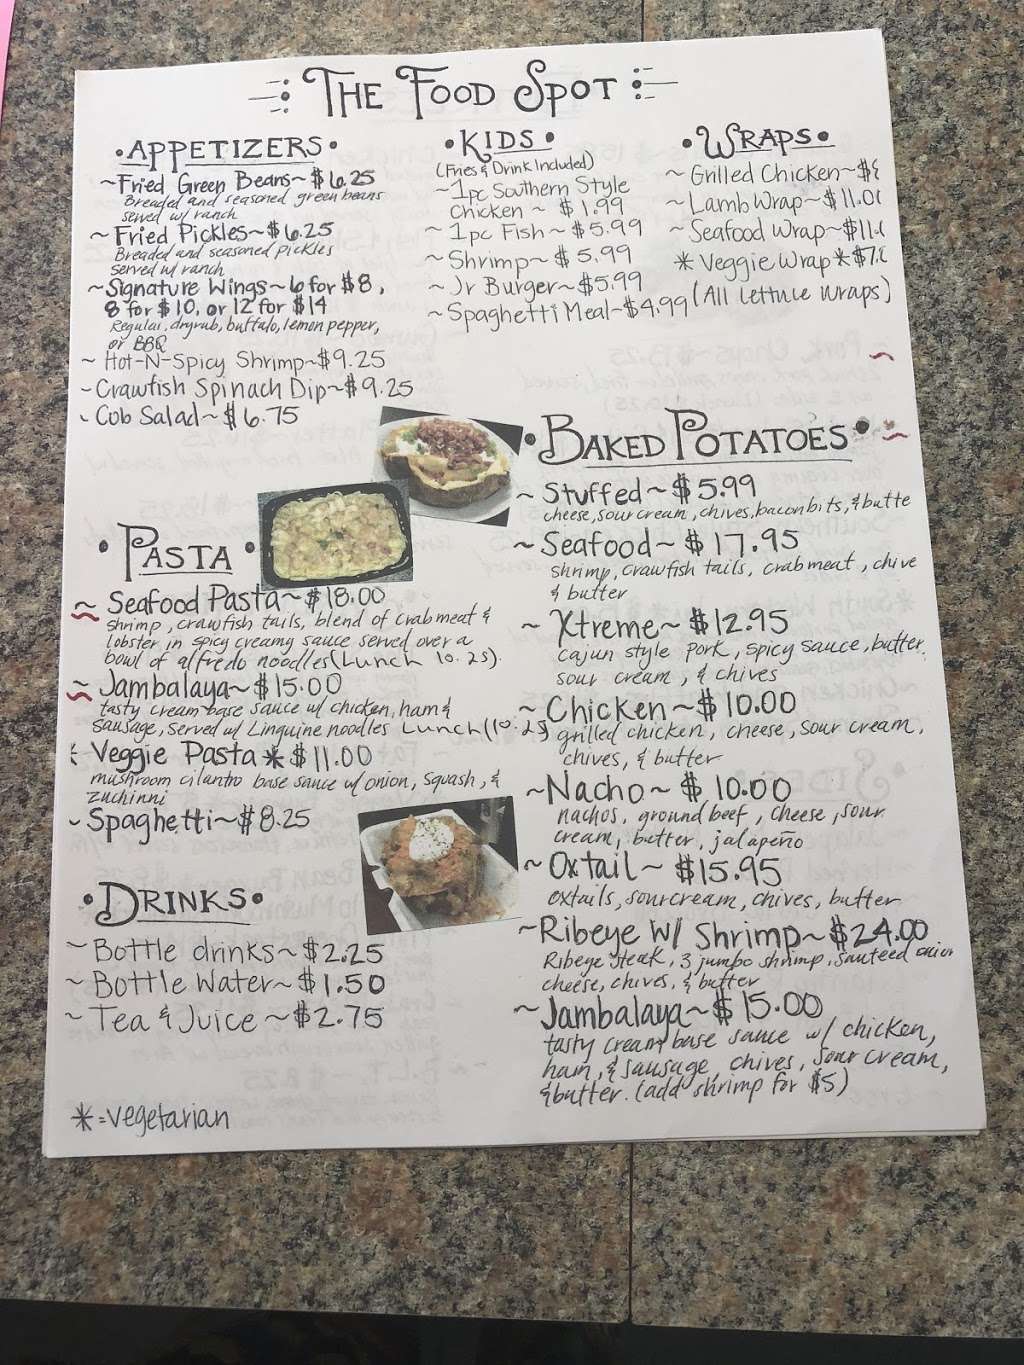 THE FOOD SPOT
• APPETIZERS •
~ Fried Green Beans ~ $6.25
Breaded and seasoned green beans
served w/ ranch
~ Fried Pickles ~ $6.25
Breaded and seasoned pickles
served w/ ranch
~ Signature Wings ~ 6 for $8,
8 for $10, or 12 for $14
Regular, dryrub, buffalo, lemon pepper,
or BBQ
~ Hot-N-Spicy Shrimp ~ $9.25
~ Crawfish Spinach Dip ~ $9.25
~ Cob Salad ~ $6.75
• KIDS •
(Fries & Drink Included)
~ 1pc Southern Style
Chicken ~ $1.99
~ 1pc Fish ~ $5.99
~ Shrimp ~ $5.99
~ Jr Burger ~ $5.99
~ Spaghetti Meal ~ $4.99
• WRAPS •
~ Grilled Chicken ~
~ Lamb Wrap ~ $11.00
~ Seafood Wrap ~ $11.
* Veggie Wrap *
(All Lettuce Wraps)
• PASTA •
~ Seafood Pasta ~ $18.00
shrimp, crawfish tails, blend of crabmeat &
lobster in spicy creamy sauce served over a
bowl of alfredo noodles (Lunch 10.25).
~ Jambalaya ~ $15.00
tasty cream base sauce w/ chicken, ham &
sausage, served w/ Linguine noodles Lunch (10.25)
Veggie Pasta * $11.00
mushroom cilantro base sauce w/ onion, squash, &
zuchinni
~ Spaghetti ~ $8.25
• DRINKS •
~ Bottle drinks ~ $2.25
~ Bottle Water ~ $1.50
~ Tea & Juice ~ $2.75
* = vegetarian
• BAKED POTATOES •
~ Stuffed ~ $5.99
cheese, sour cream, chives, bacon bits, & butte
~ Seafood ~ $17.95
shrimp, crawfish tails, crabmeat, chive
& butter
~ Xtreme ~ $12.95
cajun style pork, spicy sauce, butter,
sour cream, & chives
~ Chicken ~ $10.00
grilled chicken, cheese, sour cream,
chives, & butter
~ Nacho ~ $10.00
nachos, ground beef, cheese, sour
cream, butter, jalapeño
~ Oxtail ~ $15.95
oxtails, sour cream, chives, butter
~ Ribeye W/ Shrimp ~ $24.00
Ribeye Steak, 3 jumbo shrimp, sauteed onion
cheese, chives, & butter
~ Jambalaya ~ $15.00
tasty cream base sauce w/ chicken,
ham, & sausage, chives, sour cream,
& butter. (add shrimp for $5)